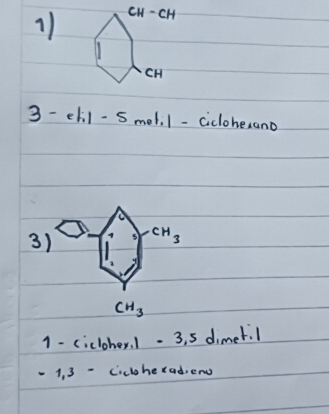 1)
CH - CH
CH
3 - etil - 5 metil - ciclohexano
3)
6
1
5
CH3
2
CH3
1 - ciclohexil - 3,5 dimetil
- 1,3 - ciclohexadieno